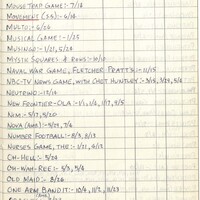 MOUSE TRAP GAME:- 7/12
MOVEMENT (3G):- 6/12
MULTO:- 6/24
MUSICAL GAME:- 1/25
MUSINGO:- 1/21, 5/24
MYSTIC SQUARES & ROWS:- 10/10
NAVAL WAR GAME, FLETCHER PRATT'S:- 11/15
NBC-TV NEWS GAME, WITH CHET HUNTLEY:-
NEUTRENO:- 12/12
NEW FRONTIER-OLA:-
NIM:- 3/17, 5/20
NOVA (AMS):- 5/29, 7/4
NUMBER FOOTBALL:- 8/3, 11/13
NURSES GAME, THE:- 1/21, 6/23
OH-HELL:- 3/24
OH-WAH-REE:- 5/3, 5/4
OLD MAID:- 3/24
ONE ARM BANDIT:- 10/4, 11/2, 11/23